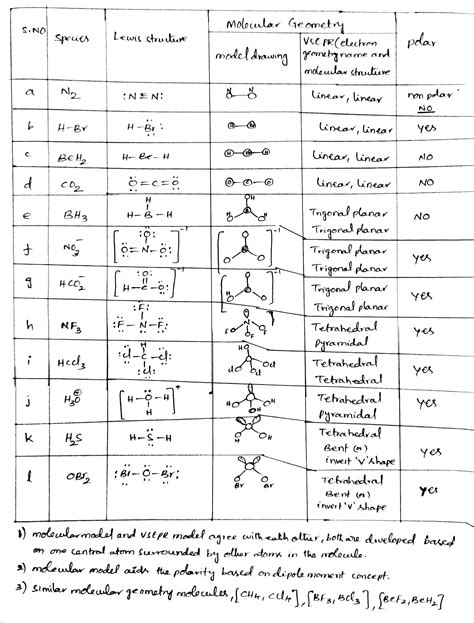 S.NO Species Lewis structure Molecular Geometry polar
model drawing VSEPR (electron geometry name and molecular structure
a N2 :N≡N: N N Linear, linear non polar NO
b H-Br H-Br: Linear, linear yes
c BeH2 H-Be-H Linear, linear NO
d CO2 O=C=O O C O Linear, linear NO
e BH3 H H-B-H Trigonal planar Trigonal planar NO
f NO2- [:O: :O=N-O:]-1 Trigonal planar Trigonal planar yes
g HCO2- [:O: H-C-O:]-1 Trigonal planar Trigonal planar yes
h NF3 :F: :F-N-F: F F F Tetrahedral pyramidal yes
i HCCl3 H :Cl-C-Cl: :Cl: Tetrahedral Tetrahedral yes
j H3O+ [H-O-H H]+ Tetrahedral pyramidal yes
k H2S H-S-H H H Tetrahedral Bent (or) invert 'V' shape yes
l OBr2 :Br-O-Br: Br Br Tetrahedral Bent (or) invert 'V' shape yes
1) molecular model and VSEPR model agree with each other, both are developed based
on one central atom surrounded by other atoms in the molecule.
2) molecular model aids the polarity based on dipole moment concept.
3) Similar molecular geometry molecules, [CH4, CCl4], [BF3, BCl3], [BeF2, BeH2]